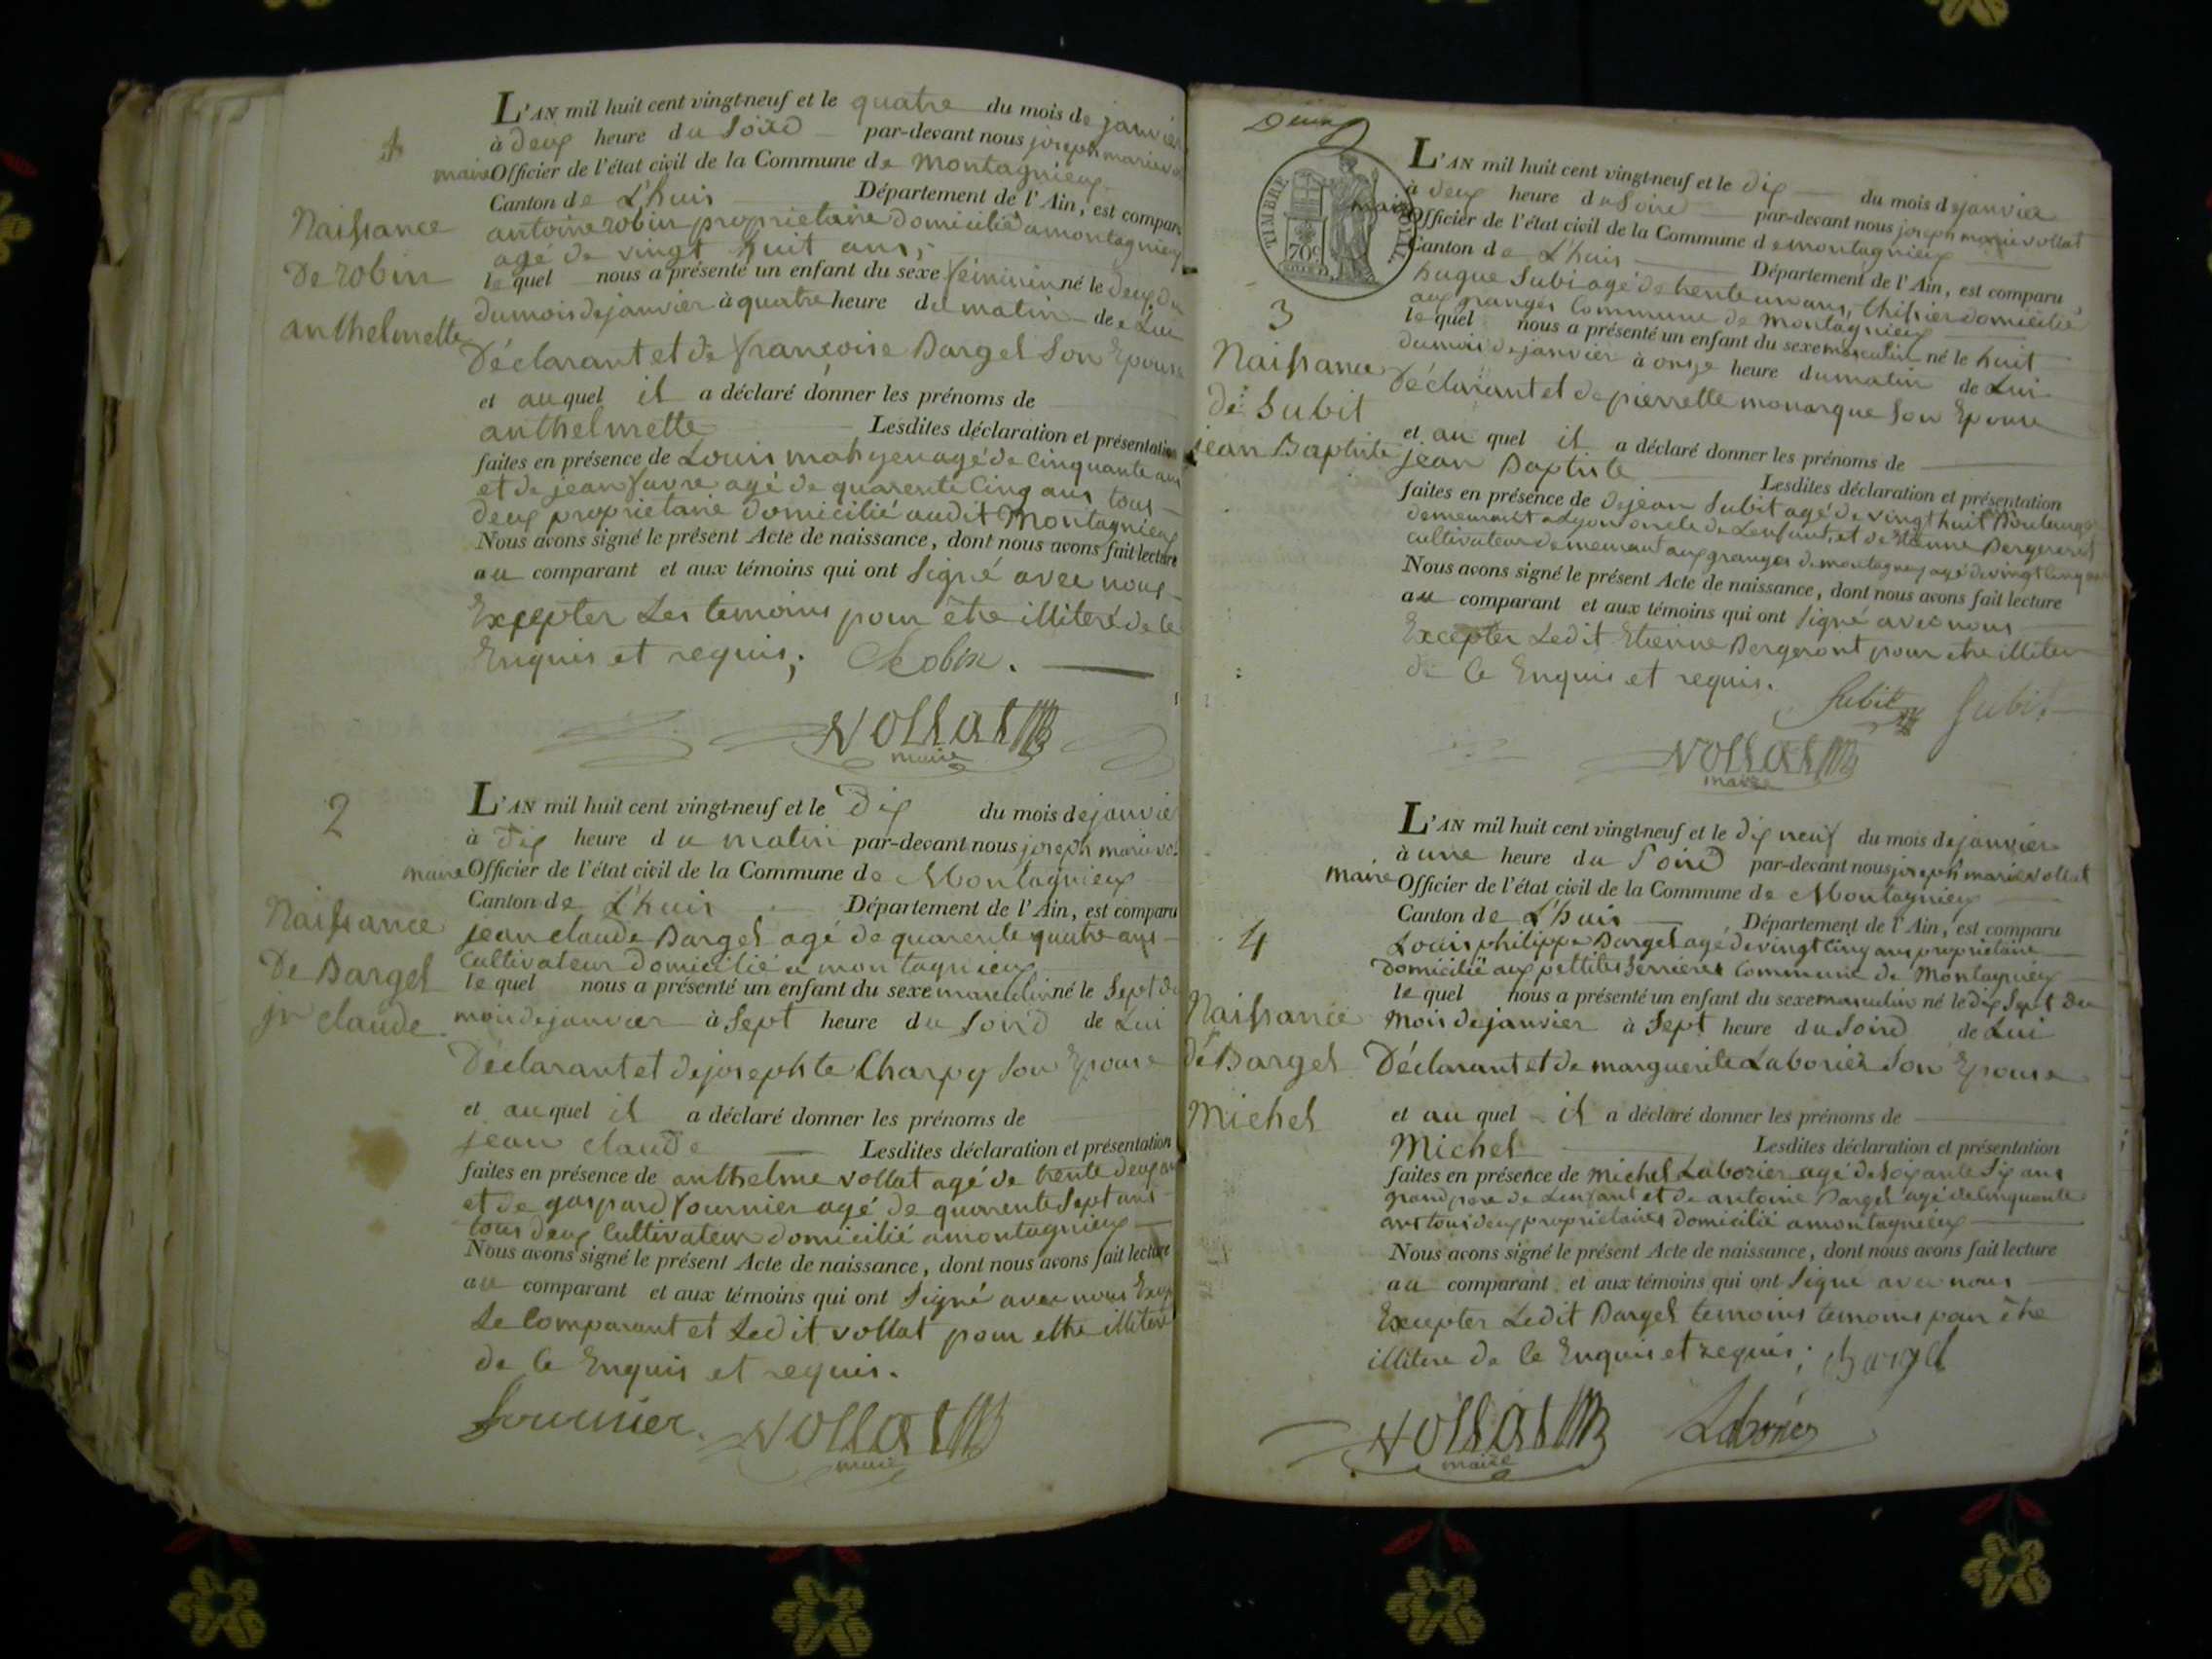 1
Naissance
De robin
anthelmette
L'AN mil huit cent vingt-neuf et le quatre du mois de janvier
à deux heure du Soird par-devant nous joseph marie
maire Officier de l'état civil de la Commune de Montagnieux
Canton de L'huis Département de l'Ain, est compar
antoine robin proprietaire domicilié a montagnieux
agé de vingt huit ans;
le quel nous a présenté un enfant du sexe féminin né le deux du
du mois de janvier à quatre heure du matin de Lui
Déclarant et de françoise Dargel Son Epouse
et auquel il a déclaré donner les prénoms de
anthelmette Lesdites déclaration et présentation
faites en présence de Louis agé de Cinquante ans
et de jean favre agé de quarente Cinq ans tous
deux proprietaire domicilié audit Montagnieux
Nous avons signé le présent Acte de naissance, dont nous avons fait lecture
au comparant et aux témoins qui ont Signé avec nous
Excepter Les temoins pour être illiteré de ce
Enquis et requis; Robin.
Vollat
maire
2
Naissance
De Dargel
jn claude
L'AN mil huit cent vingt-neuf et le Dix du mois de janvie
à Dix heure du matin par-devant nous joseph marie vo
maire Officier de l'état civil de la Commune de Montagnieux
Canton de L'huis Département de l'Ain, est comparu
jean claude Dargel agé de quarente quatre ans
Cultivateur Domicilié a montagnieux
le quel nous a présenté un enfant du sexe masculin né le Sept du
mois de janvier à Sept heure du Soird de Lui
Déclarant et de josephte Charpy Son Epouse
et auquel il a déclaré donner les prénoms de
jean claude Lesdites déclaration et présentation
faites en présence de anthelme vollat agé de trente deux ans
et de gaspard fournier agé de quarente Sept ans
tous deux Cultivateur domicilié a montagnieux
Nous avons signé le présent Acte de naissance, dont nous avons fait lecture
au comparant et aux témoins qui ont Signé avec nous Excep
Le Comparant et Ledit vollat pour ettre illiteré
de ce Enquis et requis.
fournier. Vollat
maire
TIMBRE ROYAL
70c
3
Naissance
de Subit
jean Baptiste
L'AN mil huit cent vingt-neuf et le dix du mois de janvier
à deux heure du Soire par-devant nous joseph marie vollat
maire Officier de l'état civil de la Commune de montagnieux
Canton de L'huis Département de l'Ain, est comparu
hugue Subi agé de trente un ans, domicilié
aux granges Commune de Montagnieux
le quel nous a présenté un enfant du sexe masculin né le huit
du mois de janvier à onze heure du matin de Lui
Déclarant et de pierrette monarque Son Epouse
et au quel il a déclaré donner les prénoms de
jean Baptiste Lesdites déclaration et présentation
faites en présence de de jean Subit agé de vingt huit
demeurant a Lyon oncle de L'enfant, et de Etienne Bergeront
cultivateur demeurant aux granges de montagneux agé de vingt cinq ans
Nous avons signé le présent Acte de naissance, dont nous avons fait lecture
au comparant et aux témoins qui ont Signé avec nous
Excepter Ledit Etienne Bergeront pour etre illiter
de Ce Enquis et requis.
Subit Subit
Vollat
maire
4
Naissance
de Dargel
Michel
L'AN mil huit cent vingt-neuf et le dix neuf du mois de janvier
à une heure du Soird par-devant nous joseph marie vollat
maire Officier de l'état civil de la Commune de Montagnieux
Canton de L'huis Département de l'Ain, est comparu
Louis philippe Dargel agé de vingt cinq ans proprietaire
domicilié aux pettites Serrieres Commune de Montagnieux
le quel nous a présenté un enfant du sexe masculin né le dix Sept du
Mois de janvier à Sept heure du Soird de Lui
Déclarant et de marguerite Laborier Son Epouse
et au quel il a déclaré donner les prénoms de
Michel Lesdites déclaration et présentation
faites en présence de michel Laborier agé de Soixante Six ans
grand pere de L'enfant et de antoine Dargel agé de Cinquante
ans tous deux proprietaires domicilié a montagnieux
Nous avons signé le présent Acte de naissance, dont nous avons fait lecture
au comparant et aux témoins qui ont Signé avec nous
Excepter Ledit Dargel temoins temoins pour être
illitere de Ce Enquis et requis; Dargel
Vollat Laborier
maire